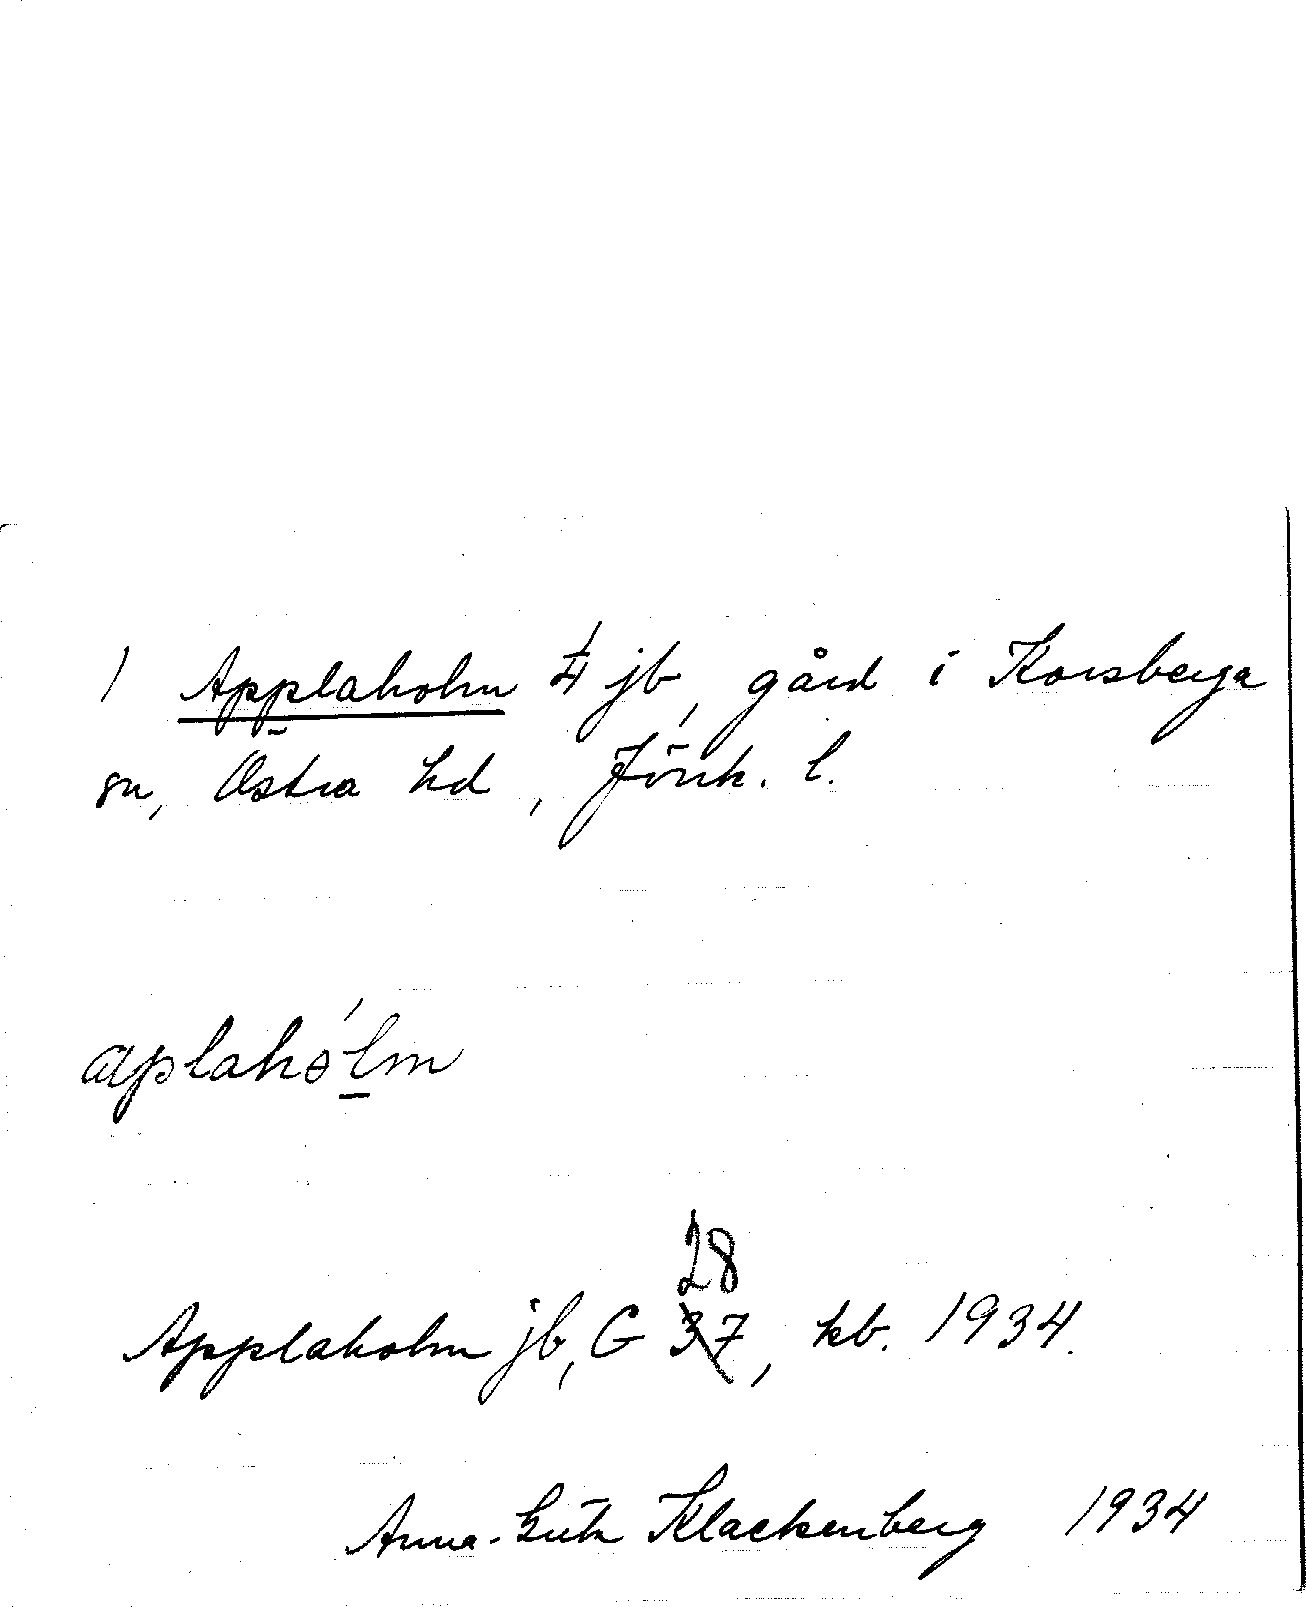 1 Applaholm 1/4 jb, gård i Korsberga
sn, Östra hd, Jönk. l.
aplahólm
28
Applaholm jb, G 37, kb. 1934.
Anna-Greta Klackenberg 1934